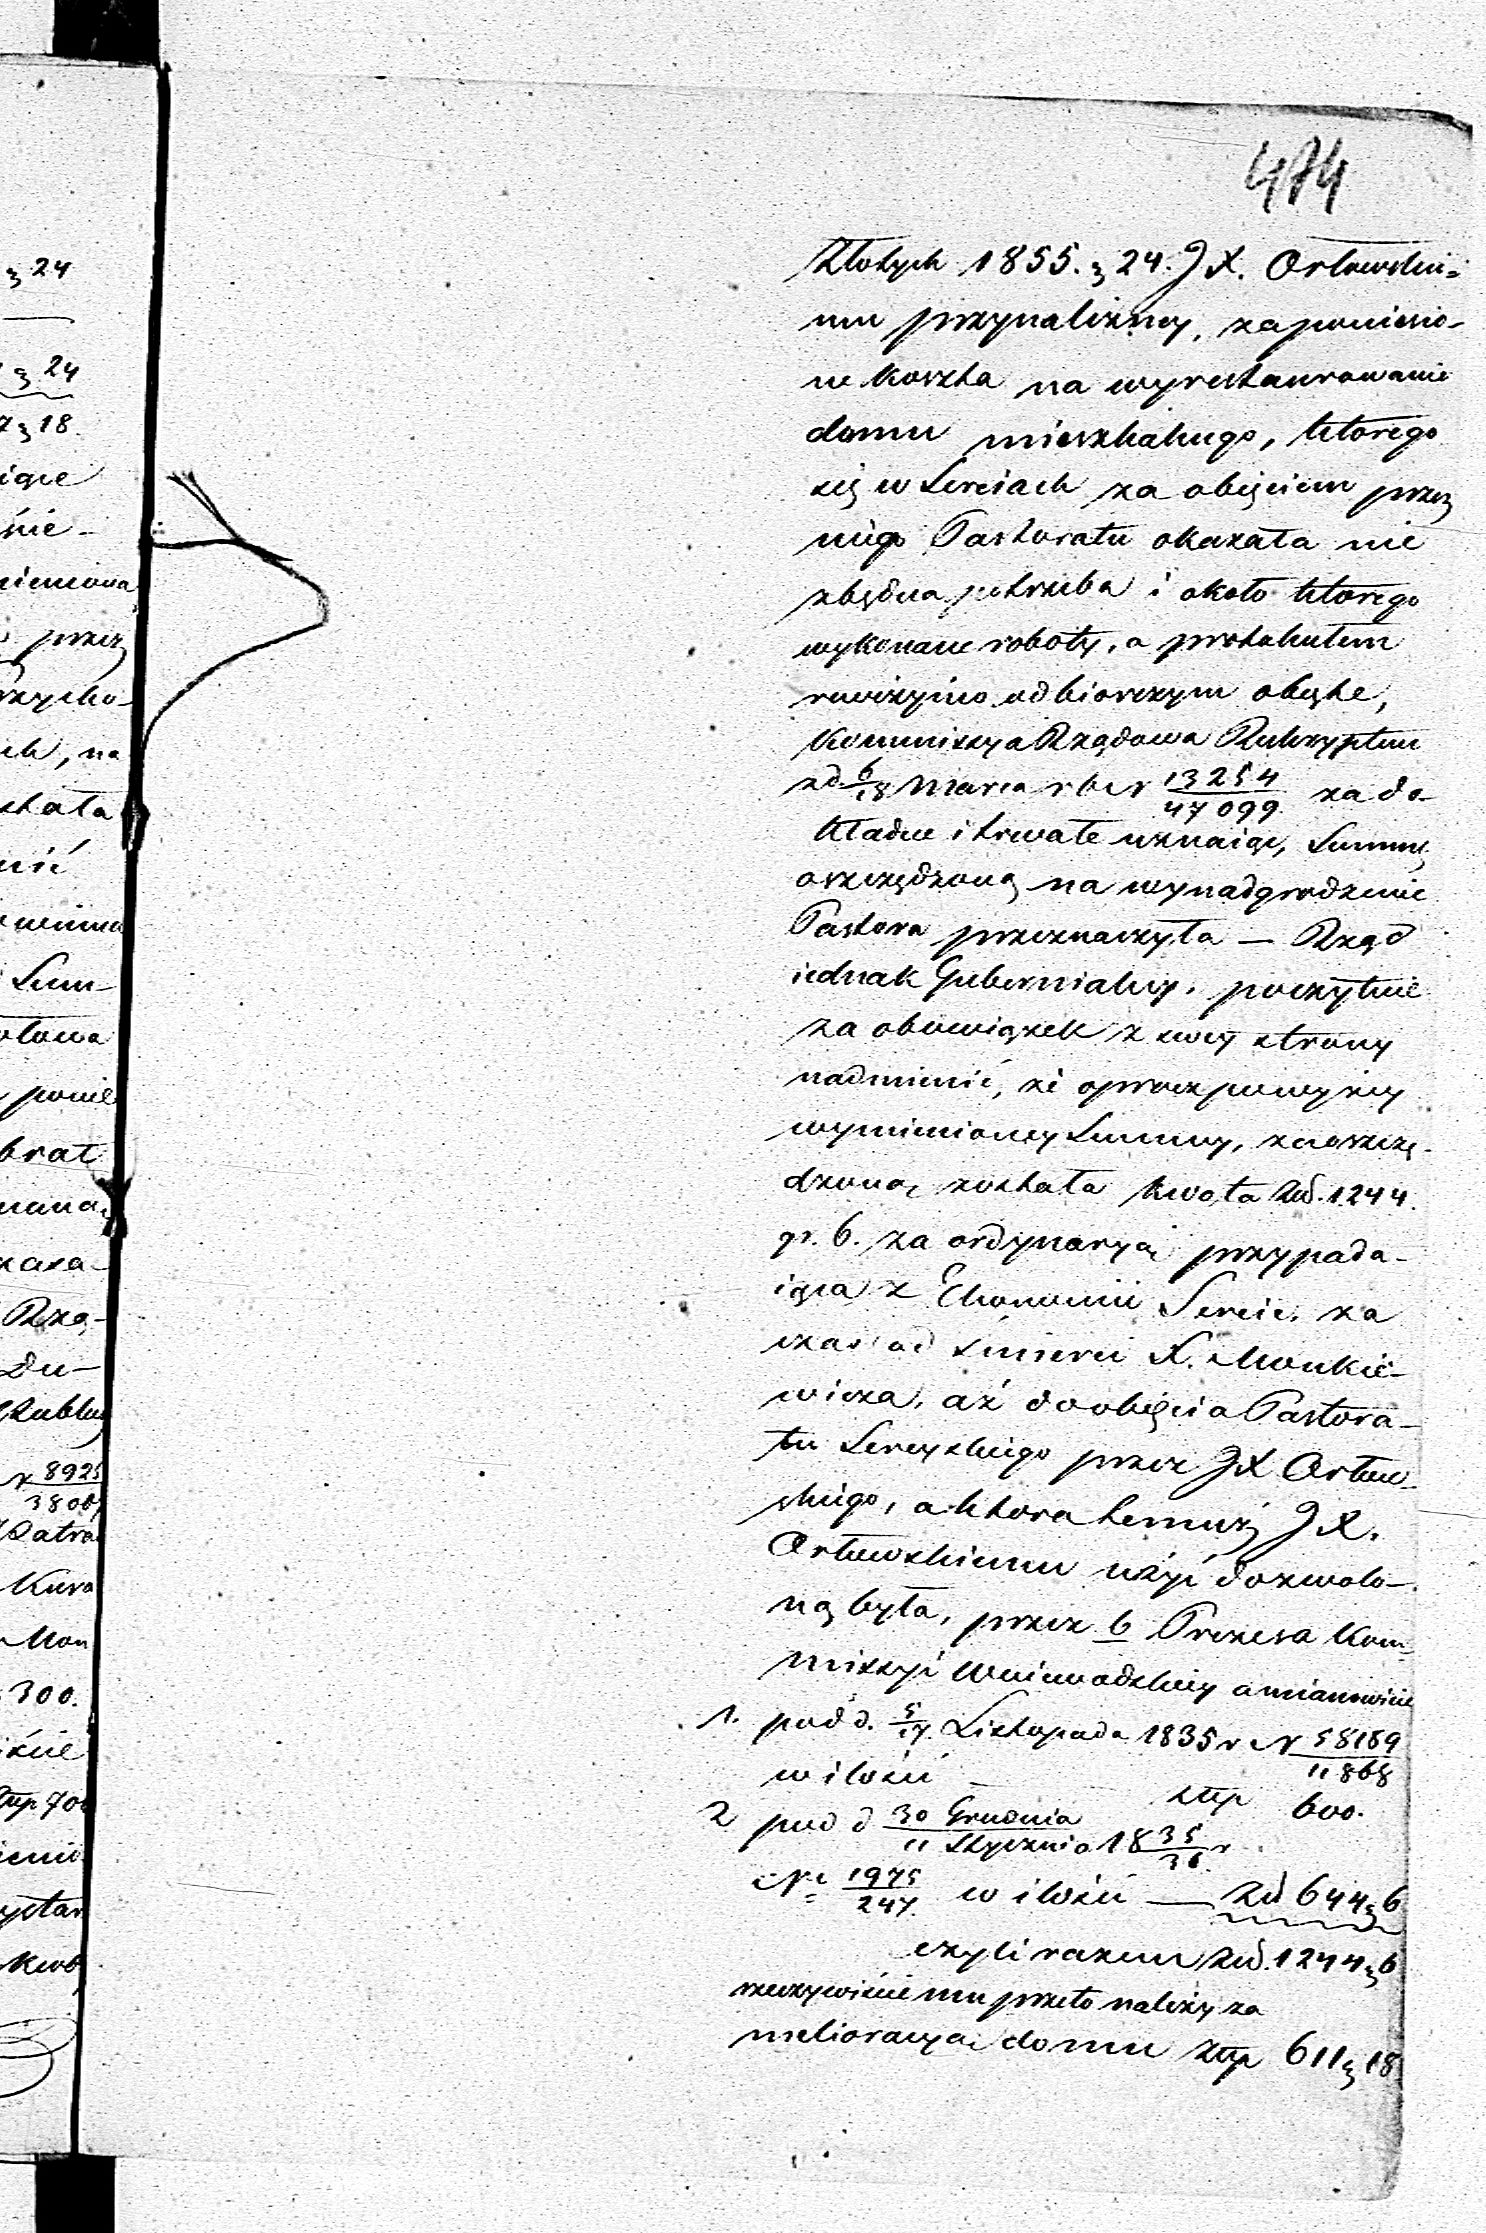 474
Złotych 1855. g 24. JX. Orłowskie=
mu przynależney, za poniesio-
ne koszta na wyrestaurowanie
domu mieszkalnego, którego
się w Sereiach za obięciem przez
niego Pastoratu okazała nie
zbędna potrzeba i około którego
wykonane roboty, a protokułem
rewizyino odbiorczym obięte,
Kommissya Rządowa Reskryptem
z d 6/18 Marca r b N 13254/47099 za do-
kładne i trwałe uznaiąc, Summę
oszczędzoną na wynadgrodzenie
Pastora przeznaczyła — Rząd
iednak Gubernialny, poczytuie
za obowiązek z swey strony
nadmienić, że oprocz powyżey
wymienioney Summy, zaoszczę-
dzoną została kwota Złł. 1244.
gr. 6. za ordynaryą przypada-
iąca z Ekonomii Sereie, za
czas od śmierci X. Monkie-
wicza, aż do obięcia Pastora-
tu Sereyskiego przez JX Orłow-
skiego, a która temuż JX.
Orłowskiemu użyć dozwolo-
ną była, przez b Prezesa Kom-
missyi Woiewodzkiey a mianowicie
1. pod d. 5/17 Listopada 1835 r N 58169/11868
w ilości — złp 600.
2 pod d 30 Grudnia/11 Stycznia 1835/36 r
No 1975/247 w ilości — Złł 644 g 6
czyli razem Złł. 1244 g 6
rzeczywiście mu przeto należy za
melioracyą domu złp 611 g 18
g 24
g 24
7 g 18.
iące
nie-
nieniona
przez
rzycho-
ich, na
stała
nić
Sum-
otowa
ponie
brał
nana,
kaza-
Rzą-
Du-
N 8925/3808
Kura
Mon
300.
złp 700